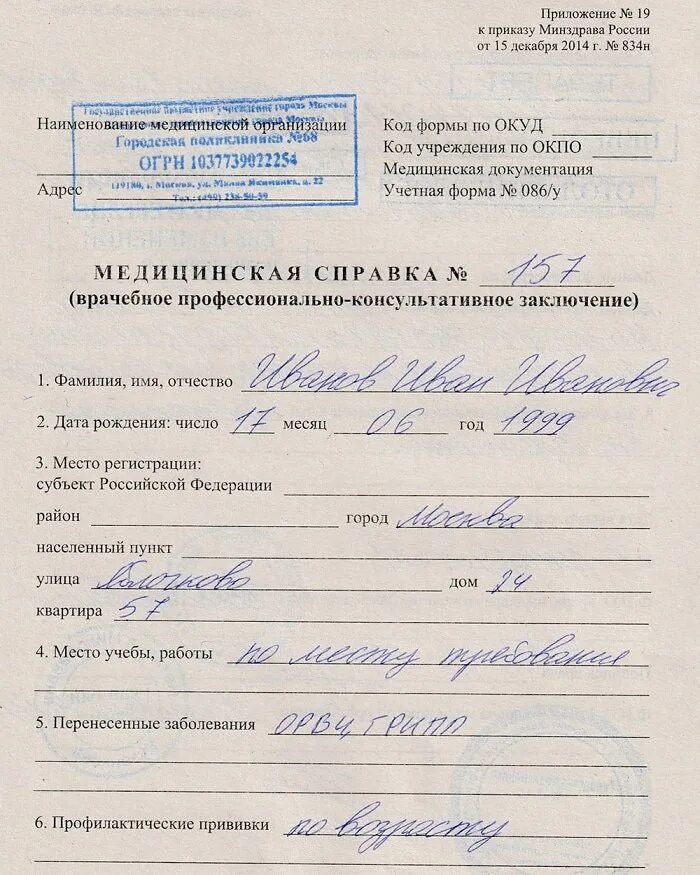 Приложение № 19
к приказу Минздрава России
от 15 декабря 2014 г. № 834н
Государственное бюджетное учреждение города Москвы
Наименование медицинской организации
Городская поликлиника №68
ОГРН 1037739022254
Адрес
119180, г. Москва, ул. Малая Якиманка, д. 22
Тел.: (499) 238-50-59
Код формы по ОКУД
Код учреждения по ОКПО
Медицинская документация
Учетная форма № 086/у
МЕДИЦИНСКАЯ СПРАВКА № 157
(врачебное профессионально-консультативное заключение)
1. Фамилия, имя, отчество Иванов Иван Иванович
2. Дата рождения: число 17 месяц 06 год 1999
3. Место регистрации:
субъект Российской Федерации
район город Москва
населенный пункт
улица Яблочково дом 24
квартира 57
4. Место учебы, работы по месту требования
5. Перенесенные заболевания ОРВИ, ГРИПП
6. Профилактические прививки по возрасту